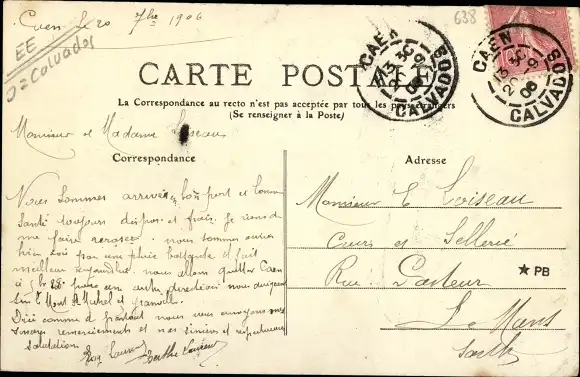 Caen le 20 7bre 1906
EE
D=Calvados
638
CAEN
CALVADOS
CAEN
CALVADOS
CARTE POSTALE
La Correspondance au recto n'est pas acceptée par tous les pays étrangers
(Se renseigner à la Poste)
Monsieur et Madame Loiseau
Correspondance
Adresse
Nous sommes arrivés à bon port et bonne
santé toujours dispos et frais. Je viens de
me faire nous sommes
hier soir par une pluie battante il fait
meilleur aujourd'hui nous allons quitter Caen
à pour une autre direction nous dirigeons
sur le Mont St Michel et Granville
D'ici comme de partout nous vous envoyons nos
et nos sincères et
salutations
Berthe
Monsieur E Loiseau
Cuirs et Sellerie
Rue Pasteur
Le Mans
Sarthe
★ PB